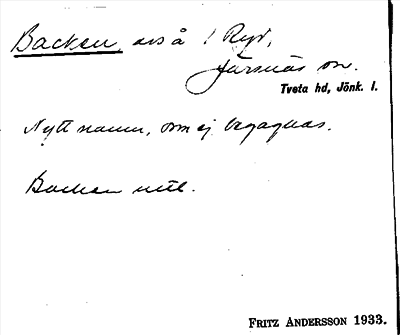 Backen, avs å 1 Ryd,
Järsnäs sn.
Tveta hd, Jönk. l.
Nytt namn, som ej begagnas.
Backen
FRITZ ANDERSSON 1933.